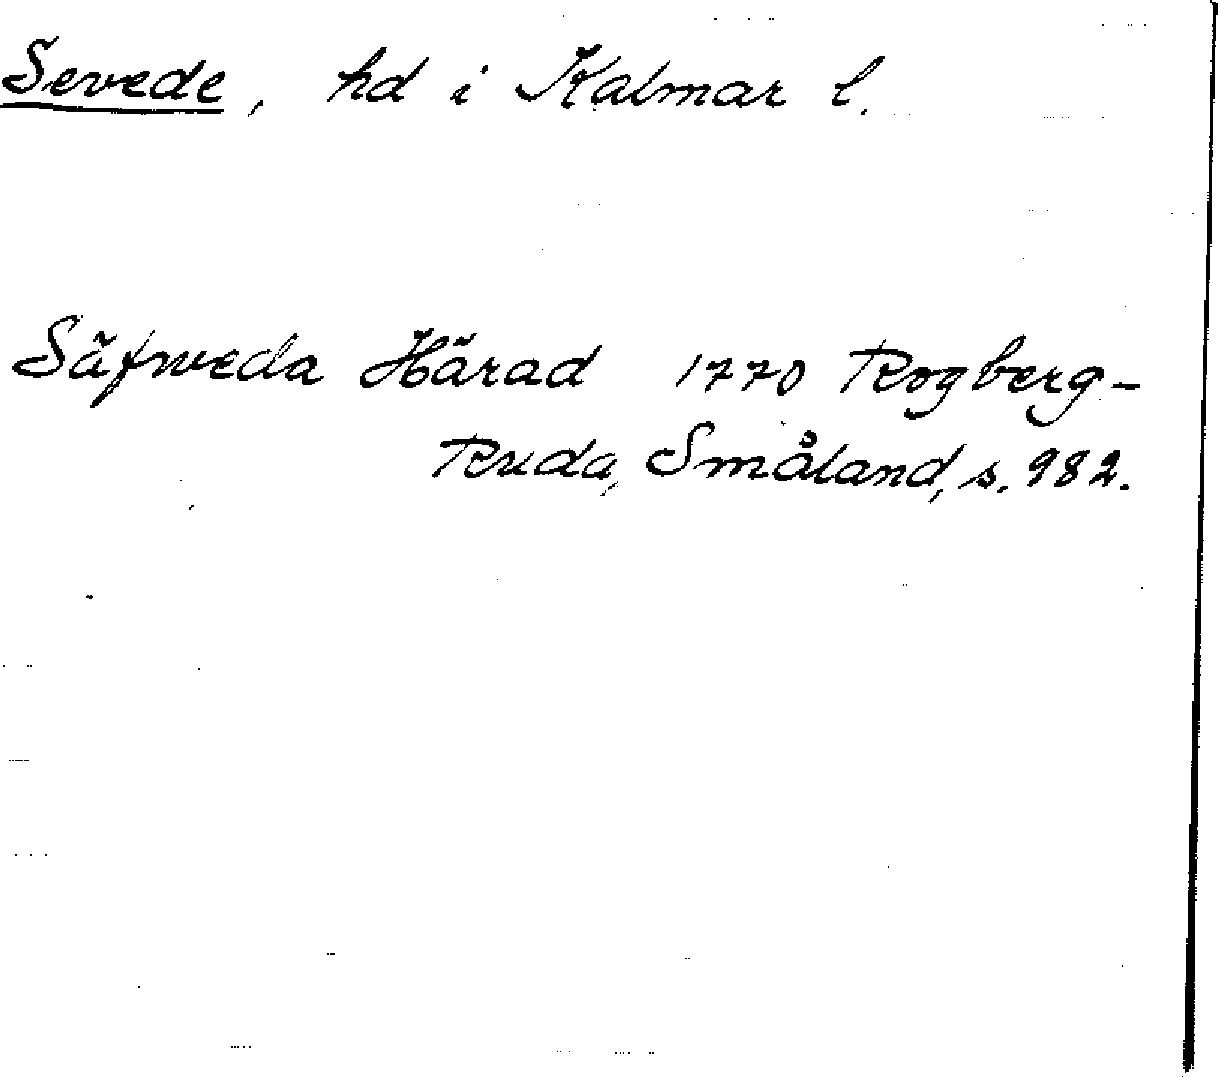 Sevede, hd i Kalmar l.
Säfweda Härad 1770 Rogberg-
Ruda, Småland, s. 982.